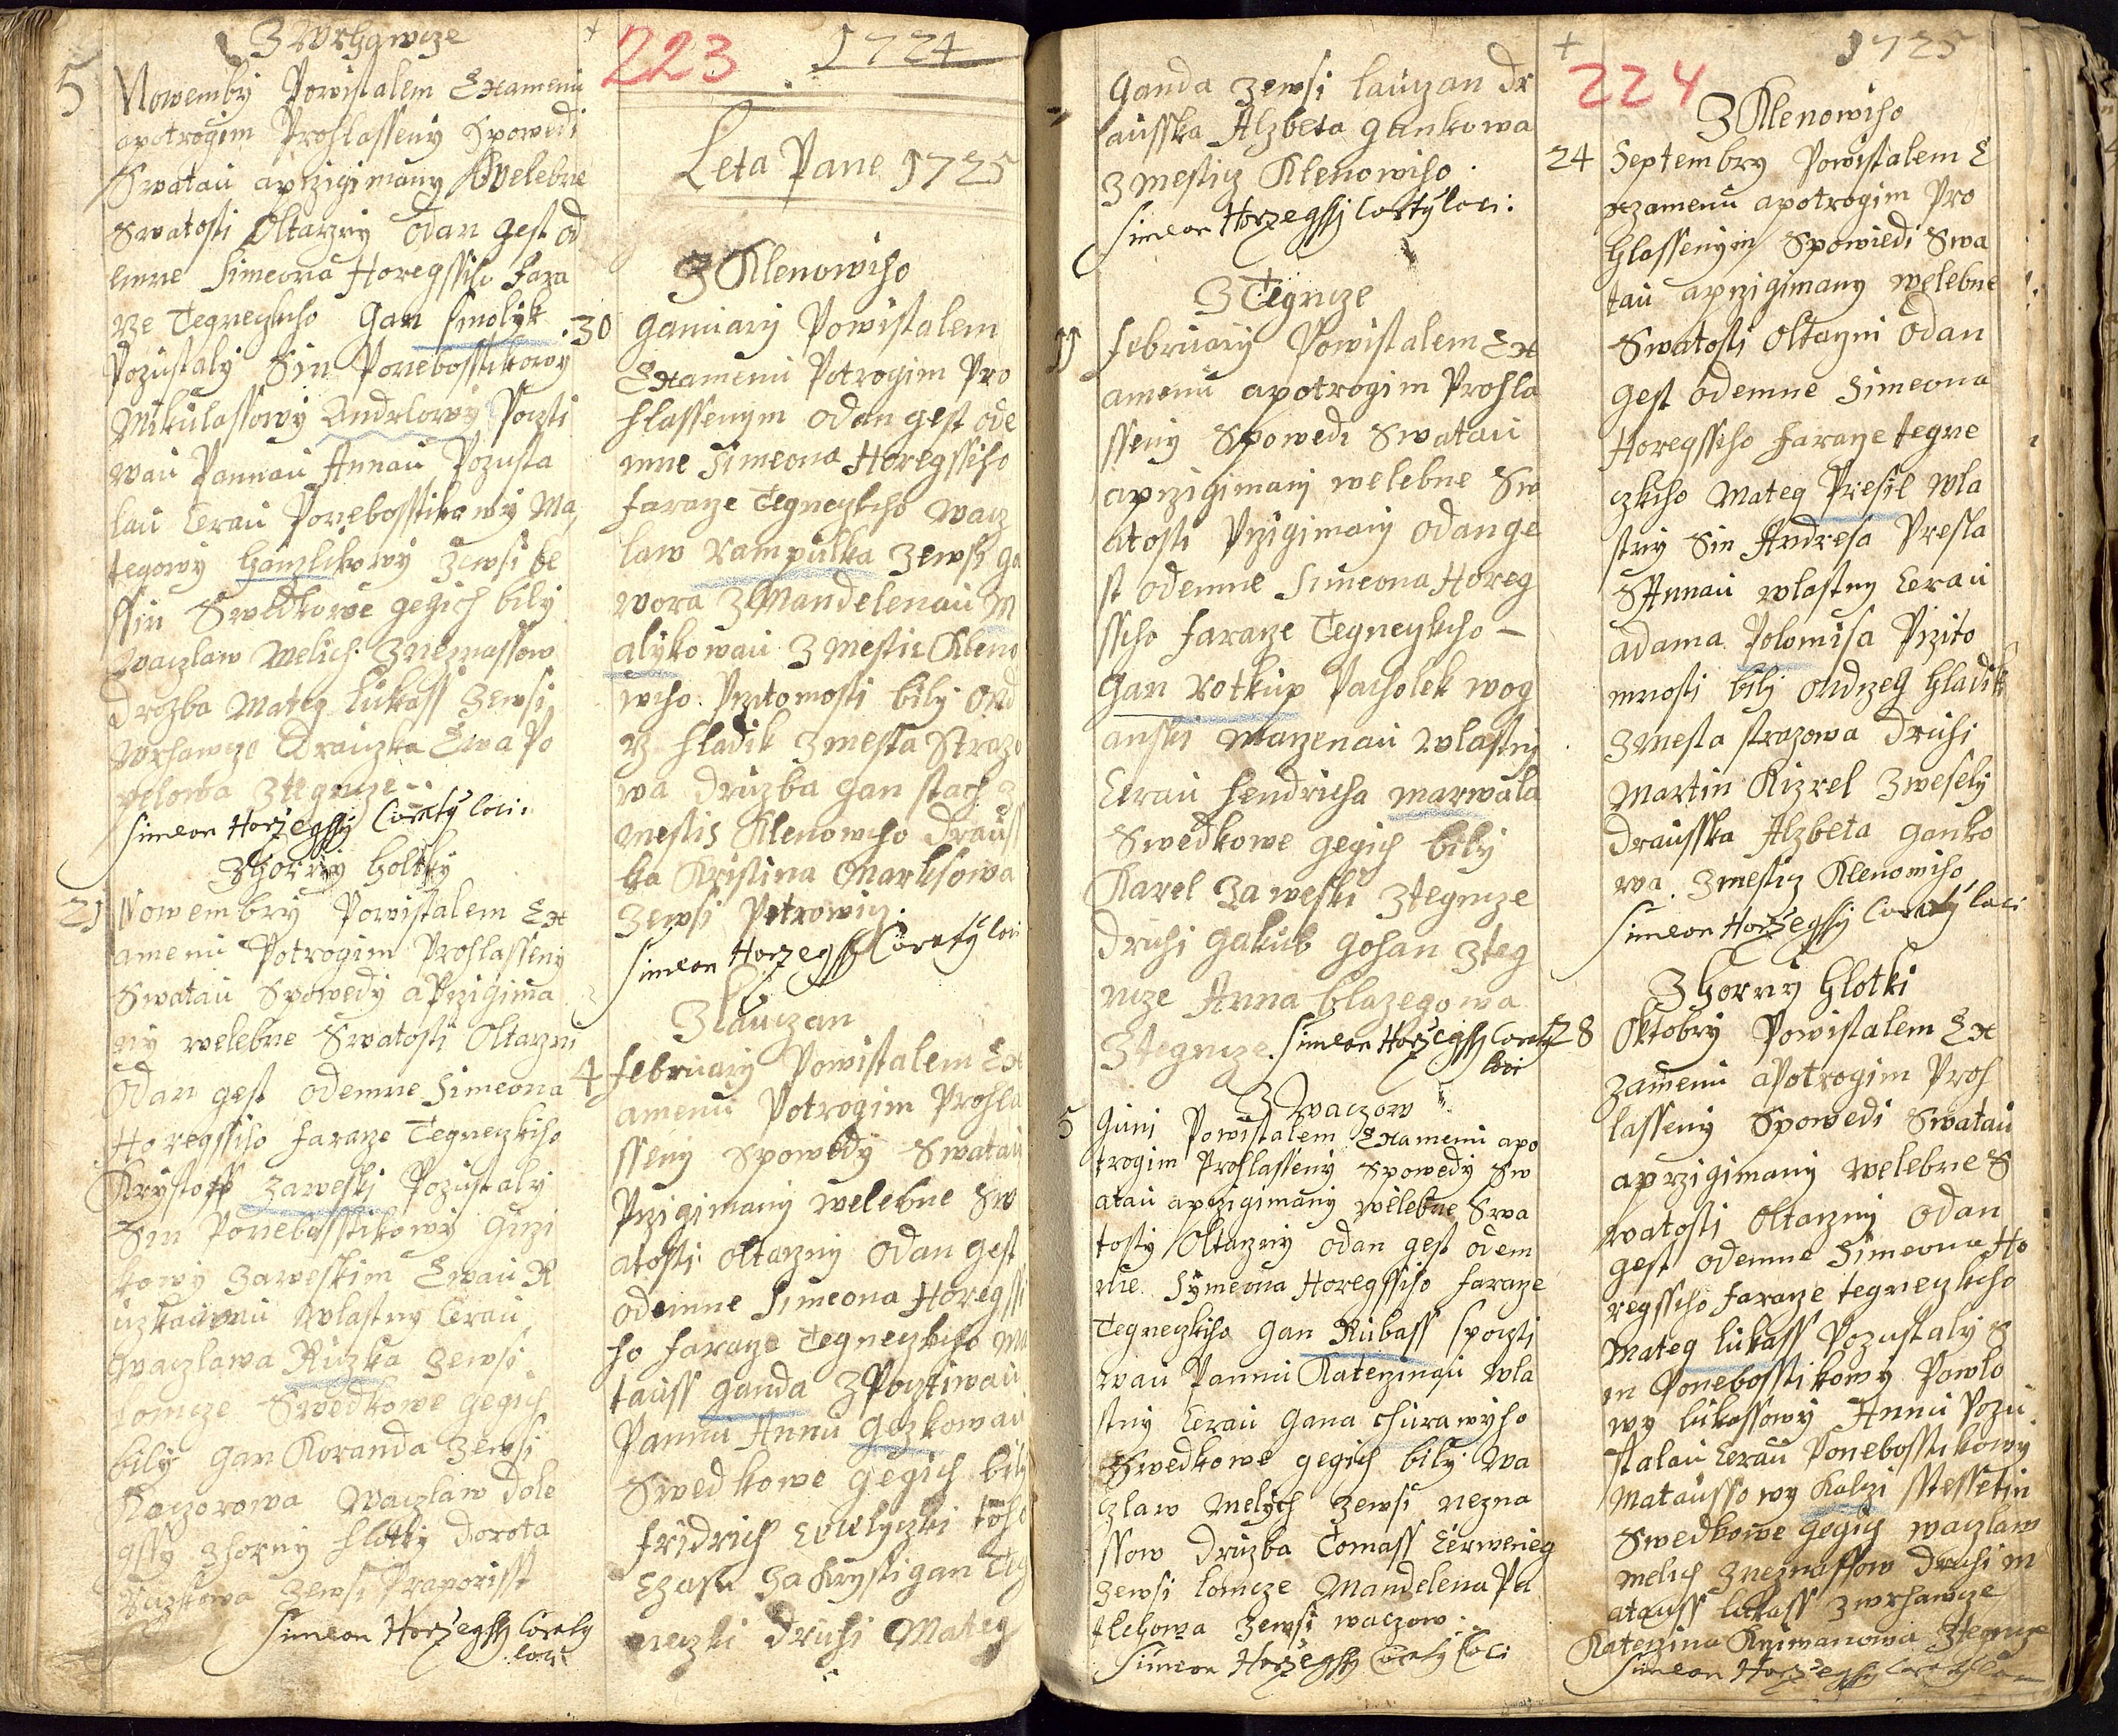 Z Wrhawcze
5 Nowemby Powistalem Examenu
apotrogim Prohlasseny Spowedi
Swatau aprzigimany Welebne
Swatosti Oltarzny odan gest od
emne Simeona Horegssiho Fara
rze Tegneczkiho Gan Smolyk
Pozustaly Sin Ponebosstikowy
Mikulassowy Andrlowy Poczti
wau Pannau Annau Pozusta
lau Cerau Ponebosstikowy Ma
tegowy Hanzlikowy zewsi be
ssin Swedkowe gegich bily
Waczlaw Melich Zneznassow
Drozba Mateg Lukass zewsi
Wrhawcze Drauzka Ewa Po
Ztegncze
Simeon Horzegssy Coraty loci:
Zhorny Holtky
21 Nowembry Powistalem Ex
amenu Potrogim Prohlasseny
Swatau Spowedy aPrzigima
ny welebne Swatosti Oltarzni
Odan gest odemne Simeona
Horegssiho Faraze Tegneczkiho
Krystoff Zaweski Pozustaly
Sin Ponebosstikowy Girzi
kowy Zaweskim Ewau R
uzkauwnu wlastny Cerau
Waczlawa Ruzka zewsi
Lomcze Swedkowe gegich
bily Gan Koranda zewsi
Kaczorowa Waczlaw dole
gssy zhorny Hlotky Dorota
Ruzkowa zewsi Praporisst
Simeon Horzegssy Coraty
loci
223 1724
Leta Pane 1725
Z Klenowiho
30 Ganuary Powistalem
Examenu Potrogim Pro
hlassenym odan gest ode
mne Simeona Horegssiho
Faraze Tegneczkiho Wacz
law Rampulka zewsi Ga
wora Z Mandelenau M
alykowau Z Mestis Kleno
wiho Przitomosti bily Ond
rz Hladik Zmesta Strazo
wa druzba Gan Stach z
Mestis Klenowiho drauss
ka Kristina Marksowa
zewsi Petrowicz.
Simeon Horzegssy Coraty loci
Z Lauczan
4 February Powistalem Ex
amenu Potrogim Prohla
sseny Spowedy Swatau
Przigimany welebne Sw
atosti Oltarzny odan gest
odemne Simeona Horegssi
ho Faraze Tegneczkiho Ma
tauss Ganda ZPocztiwau
Pannu Annu Gezkowau
Swedkowe gegich bily
Fridrich toho
Czasu Za Krystigan Teg
neczki druhi Mateg
Ganda zewsi Lauczan dr
aússka Alzbeta Gankowa
Z mestis Klenowiho.
Simeon Horzegssy Coraty loci:
Z Tegncze
11 February Powistalem Ex
amenu apotrogim Prohla
sseny Spowedi Swatau
aprzigimany welebne Sw
atosti Przigimany odan ge
st odemne Simeona Horeg
ssiho Faraze Tegneczkiho –
Gan Rotkup Pacholek wog
anski Marzenau wlastny
Cerau Hendricha Marwala
Swedkowe gegich bily
Karel Zaweski Ztegncze
druhi Gakub Gohan Zteg
ncze Anna Blazegowa
Ztegncze. Simeon Horzegssy Coraty
loci
Z Waczow
5 Guni Powistalem Examenu apo
trogim Prohlasseny Spowedy Sw
atau aprzigimany welebne Swa
tosty Oltarzny odan gest odem
nie Symeona Horegssiho Faraze
Tegneczkiho Gan Rubass Spoczti
wau Pannu Katerzinau wla
stny Cerau Gana Churawyho
Swedkowe gegich bily Wa
czlaw Melych zewsi Nezna
ssow druzba Tomass Cerweneg
zewsi Lomcze Mandelena Pu
zewsi Waczow.
Simeon Horzegssy Coraty loci
224 1725
Z Klenowiho
24 Septembry Powistalem E
xzamenu apotrogim Pro
hlassenym Spowiedi Swa
tau aprzigimany welebne
Swatosti Oltarzni odan
gest odemne Simeona
Horegssiho Faraze Tegne
czkiho Mateg Presil wla
stny Sin Andresa Presla
SAnnau wlastny Cerau
adama Polomisa Przito
mnosti bily Ondrzeg Hladik
Zmesta Strazowa druhi
Martin Kizrel Zwesely
draússka Alzbeta Ganko
wa Zmestis Klenowiho
Simeon Horzegssy Coraty loci
Zhorny Hlotki
28 Oktobry Powistalem Ex
zamenu aPotrogim Proh
lasseny Spowedi Swatau
aprzigimany welebne S
watosti Oltarzny odan
gest odemne Simeona Ho
regssiho Faraze Tegneczkiho
Mateg Lukass Pozustaly S
in Ponebosstikowy Pawlo
wy Lukassowy Annu Pozu
stalau Cerau Ponebosstikowy
Mataussowy Kalczi
Swedkowe gegich Waczlaw
Melich Zneznassow druhi M
atauss Lukass Zwrhawcze
Katerzina Ztegncze
Simeon Horzegssy Coraty loci